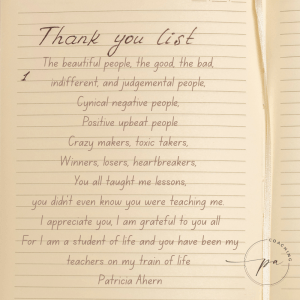 Thank you list
The beautiful people, the good, the bad,
1
indifferent, and judgemental people,
Cynical negative people,
Positive upbeat people
Crazy makers, toxic takers,
Winners, losers, heartbreakers,
You all taught me lessons,
you didn't even know you were teaching me.
I appreciate you, I am grateful to you all
For I am a student of life and you have been my
teachers on my train of life
Patricia Ahern
pa
COACHING